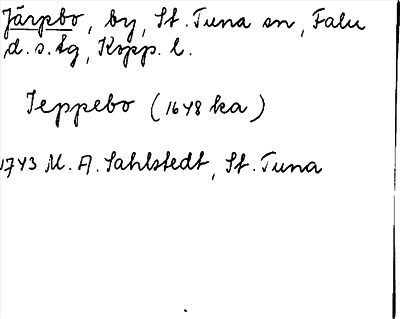 Järpbo, by, St. Tuna sn, Falu
d. s. lg, Kopp. l.
Jeppebo (1648 ka)
1743 M. A. Sahlstedt, St. Tuna